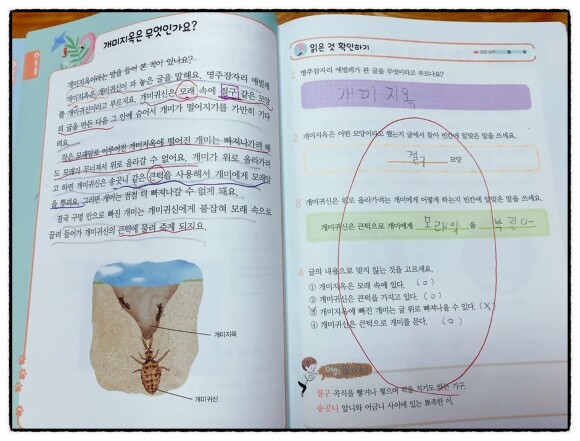 개미지옥은 무엇인가요?
개미지옥이라는 말을 들어 본 적이 있나요?
개미지옥은 개미귀신이 파 놓은 굴을 말해요. 명주잠자리 애벌레
를 개미귀신이라고 부르지요. 개미귀신은 모래 속에 절구 같은 모양
의 굴을 만든 다음 그 안에 숨어서 개미가 떨어지기를 가만히 기다
려요.
작은 모래알로 이루어진 개미지옥에 떨어진 개미는 빠져나가려 해
도 모래가 무너져서 위로 올라갈 수 없어요. 개미가 위로 올라가려
고 하면 개미귀신은 송곳니 같은 큰턱을 사용해서 개미에게 모래알
을 뿌려요. 그러면 개미는 점점 더 빠져나갈 수 없게 돼요.
결국 구멍 안으로 빠진 개미는 개미귀신에게 붙잡혀 모래 속으로
끌려 들어가 개미귀신의 큰턱에 물려 죽게 되지요.
개미지옥
개미귀신
읽은 것 확인하기
1 명주잠자리 애벌레가 판 굴을 무엇이라고 부르나요?
개미지옥
2 개미지옥은 어떤 모양이라고 했는지 글에서 찾아 빈칸에 알맞은 말을 쓰세요.
절구 모양
3 개미귀신은 위로 올라가려는 개미에게 어떻게 하는지 빈칸에 알맞은 말을 쓰세요.
개미귀신은 큰턱으로 개미에게 모래알 을 뿌린다.
4 글의 내용으로 맞지 않는 것을 고르세요.
① 개미지옥은 모래 속에 있다. (O)
② 개미귀신은 큰턱을 가지고 있다. (O)
③ 개미지옥에 빠진 개미는 굴 위로 빠져나올 수 있다. (X)
④ 개미귀신은 큰턱으로 개미를 문다. (O)
어휘
절구 곡식을 빻거나 찧으며 떡을 치기도 하는 기구.
송곳니 앞니와 어금니 사이에 있는 뾰족한 이.